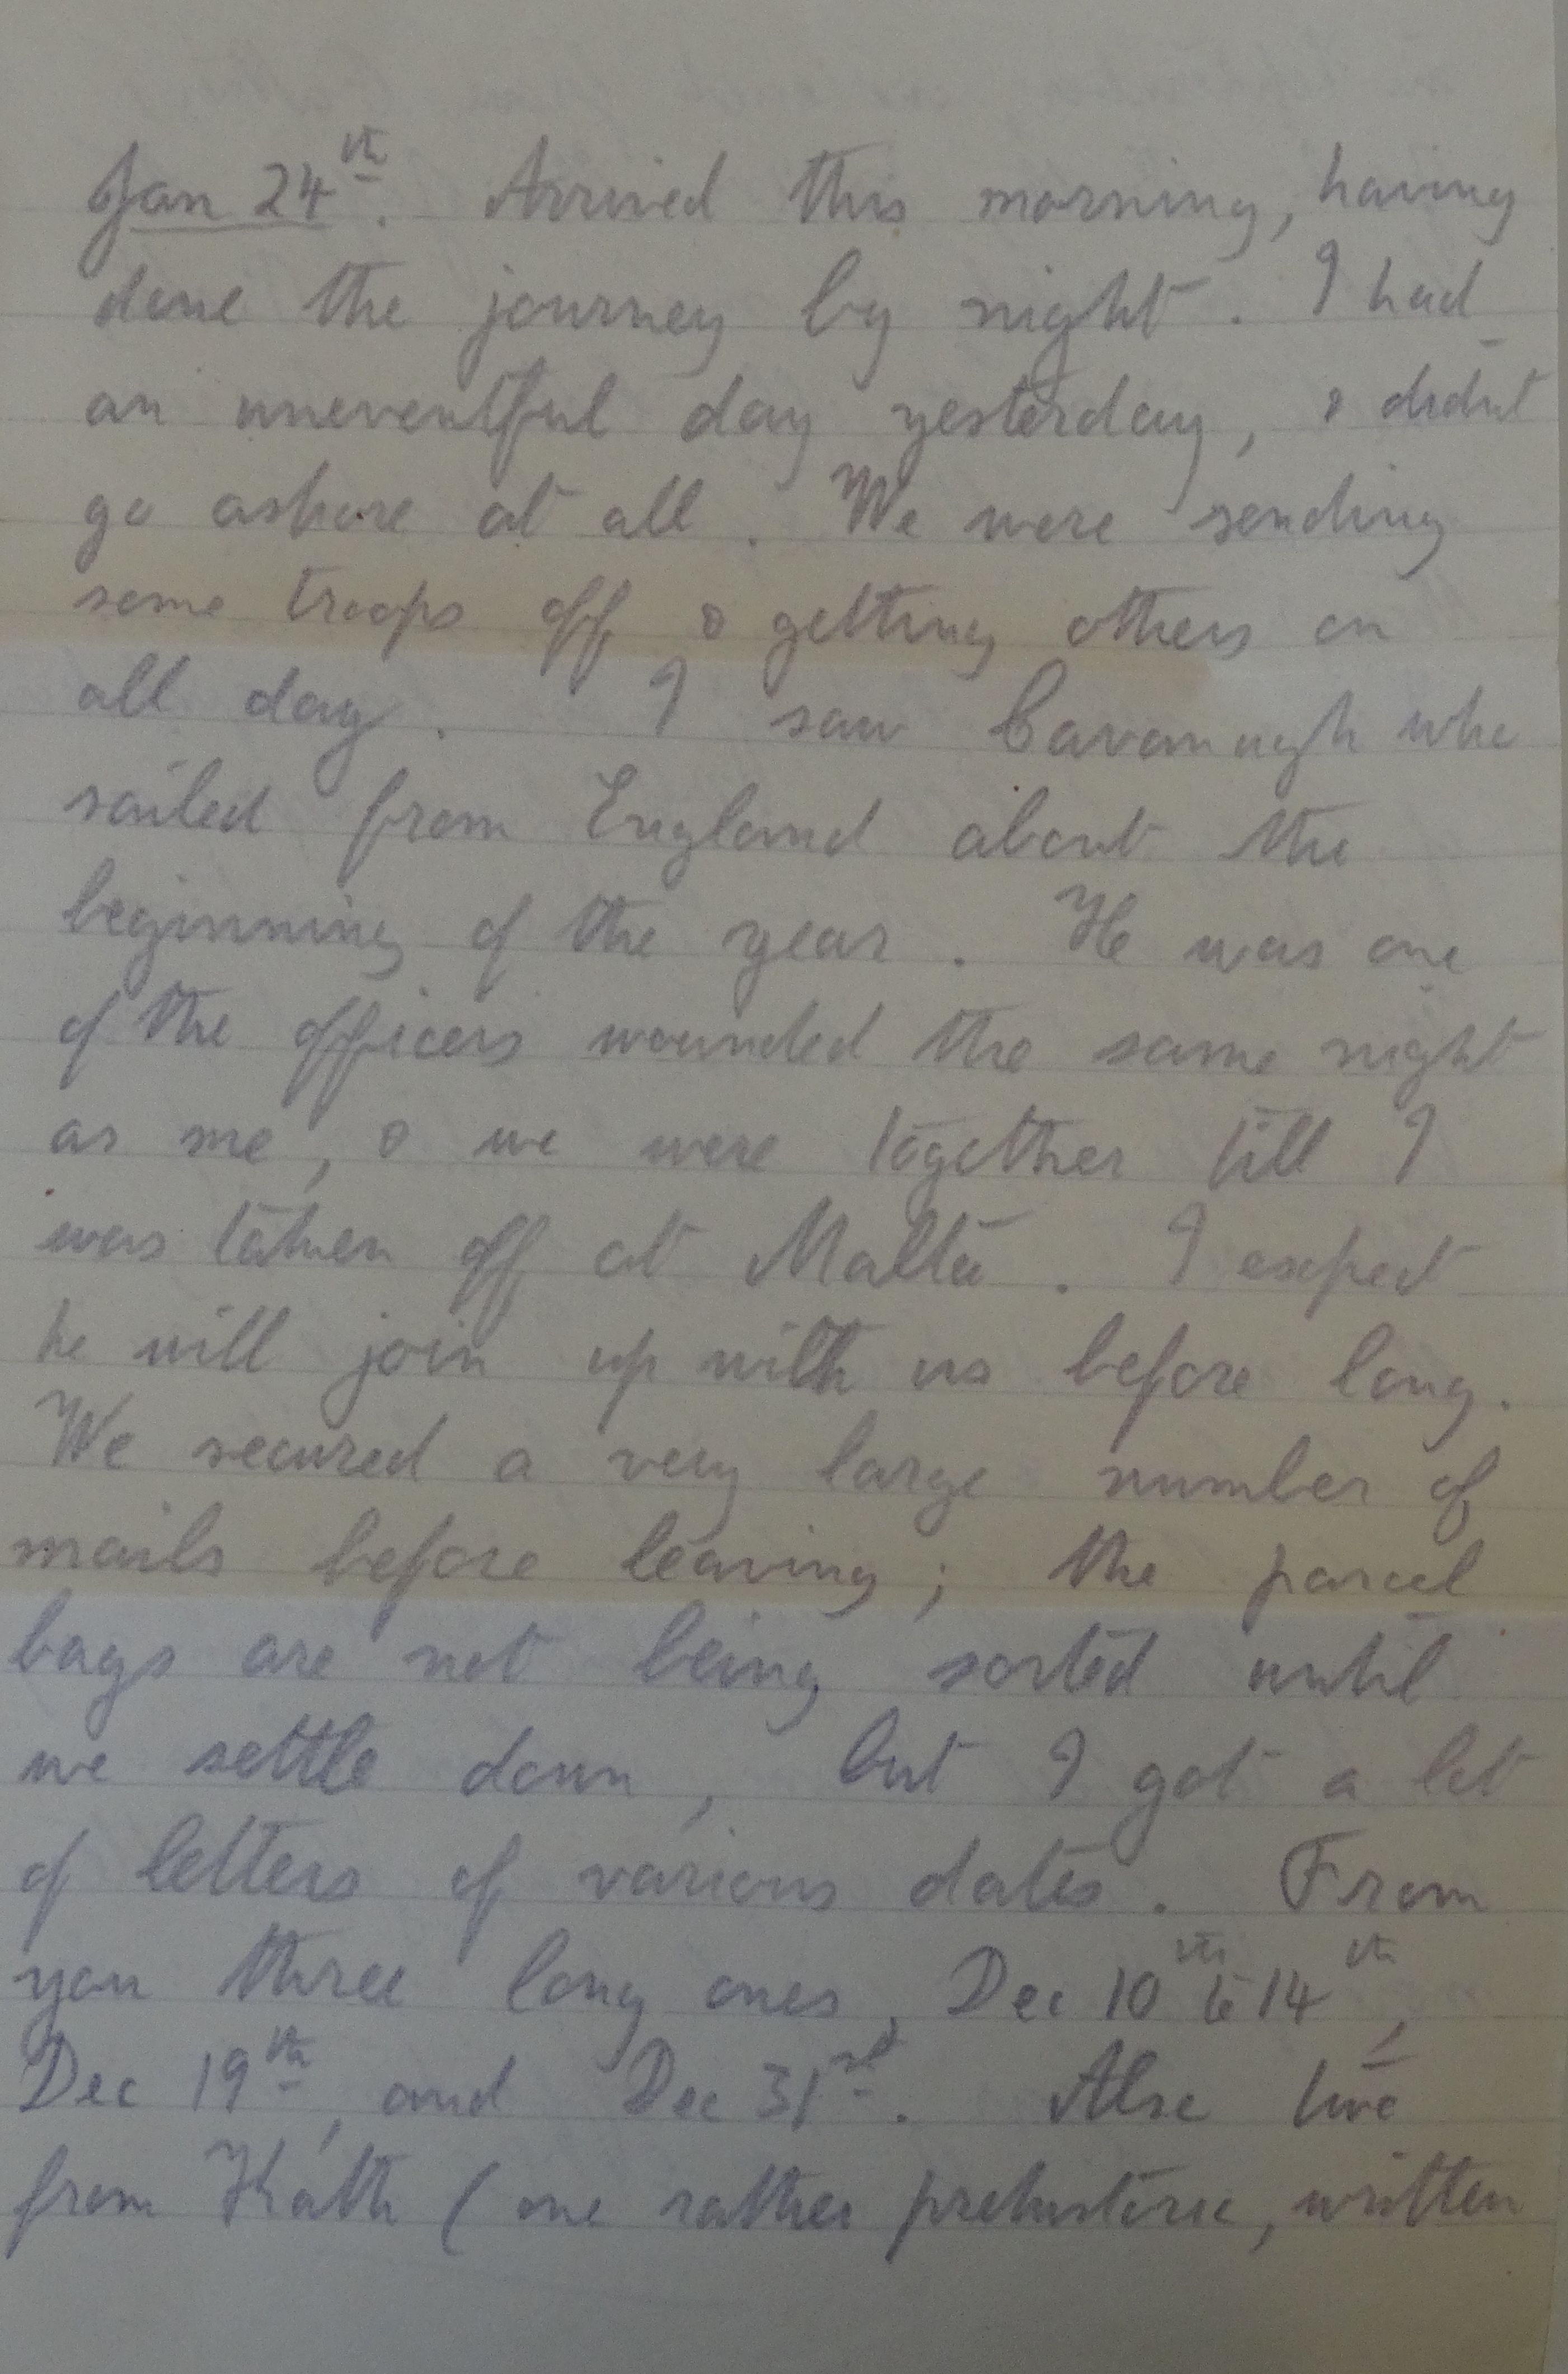 Jan 24th. Arrived this morning, having
done the journey by night. I had
an uneventful day yesterday, & didnt
go ashore at all. We were sending
some troops off & getting others on
all day. I saw Cavanagh who
sailed from England about the
beginning of the year. He was one
of the officers wounded the same night
as me, & we were together till I
was taken off at Malta. I expect
he will join up with us before long.
We secured a very large number of
mails before leaving; the parcel
bags are not being sorted until
we settle down, but I got a lot
of letters of various dates. From
you three long ones, Dec 10th to 14th,
Dec 19th, and Dec 31st. Also two
from Kath (one rather prehistoric, written